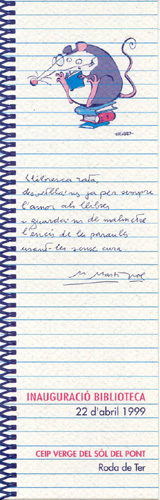 Llibresca rata,
desvetlla'ns ja per sempre
l'amor als llibres
i guarda'ns de malmetre
l'encís de les paraules
usant-les sense cura.
M. Martí Pol
INAUGURACIÓ BIBLIOTECA
22 d'abril 1999
CEIP VERGE DEL SÒL DEL PONT
Roda de Ter